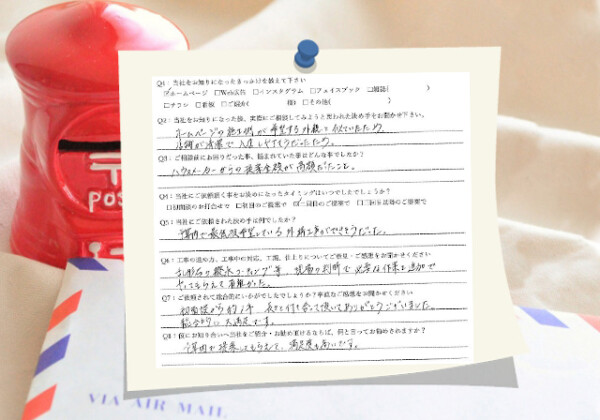 〒
POS
VIA AIR MAIL
Q1：当社をお知りになったきっかけを教えて下さい
☑ホームページ □Web広告 □インスタグラム □フェイスブック □雑誌( )
□チラシ □看板 □ご紹介( 様) □その他( )
Q2：当社をお知りになった後、実際にご相談してみようと思われた決め手をお聞かせ下さい。
ホームページの施工例が希望する外構と似ていたため
店舗が清潔で入店しやすそうだったため。
Q3：ご相談前にお困りだった事、悩まれていた事はどんな事でしたか？
ハウスメーカーからの提案金額が高額だったこと。
Q4：当社にご依頼頂く事をお決めになったタイミングはいつでしたでしょうか？
□初回のお打合せで □1回目のご提案で ☑二回目のご提案で □三回目以降のご提案で
Q5：当社にご依頼された決め手は何でしたか？
予算内で最低限希望している外構工事ができそうだった。
Q6：工事の進め方、工事中の対応、工期、仕上りについてご意見・ご感想をお聞かせください
乱形石の撥水コーティング等、現場の判断で必要な作業を追加で
やってもらえて有難かった。
Q7：ご依頼されて総合的にいかがでしたでしょうか？率直なご感想をお聞かせください
初回提から約1年、長々と付き合って頂いてありがとうございました。
総合的に大満足です。
Q8：仮にお知り合いへ当社をご紹介・お勧め頂けるならば、何と言ってお勧めされますか？
予算内で提案してもらえて、満足度も高いです。